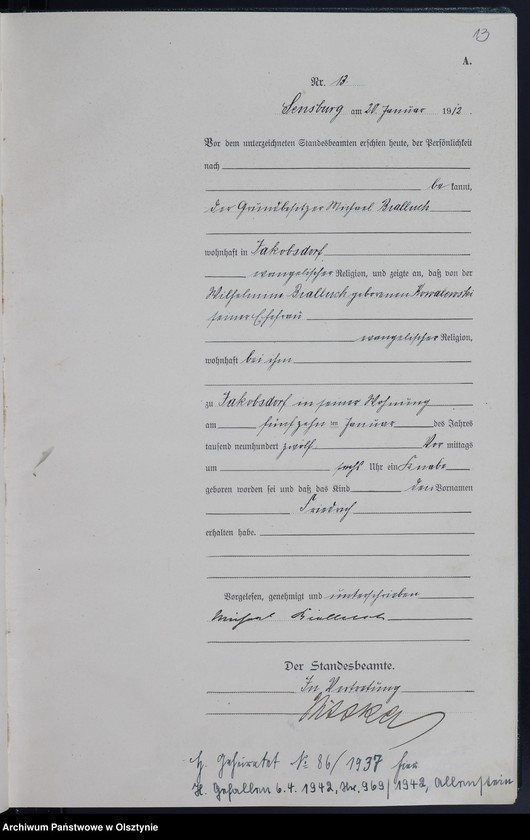 13
A.
Nr. 13
Sensburg am 20. Januar 1912.
Vor dem unterzeichneten Standesbeamten erschien heute, der Persönlichkeit
nach
be kannt,
der Grundbesitzer Michael Bialluch
wohnhaft in Jakobsdorf
evangelischer Religion, und zeigte an, daß von der
Wilhelmine Bialluch geborenen Kowalewski
seiner Ehefrau
evangelischer Religion,
wohnhaft bei ihm
zu Jakobsdorf in seiner Wohnung
am fünfzehn ten Januar des Jahres
tausend neunhundert zwölf Vor mittags
um sechs Uhr ein Knabe
geboren worden sei und daß das Kind den Vornamen
Friedrich
erhalten habe.
Vorgelesen, genehmigt und unterschrieben
Michael Bialluch
Der Standesbeamte.
In Vertretung
H. Geheiratet № 86/1937 hier
H. Gefallen 6.4.1942, Nr. 969/1942, Allenstein
Archiwum Państwowe w Olsztynie